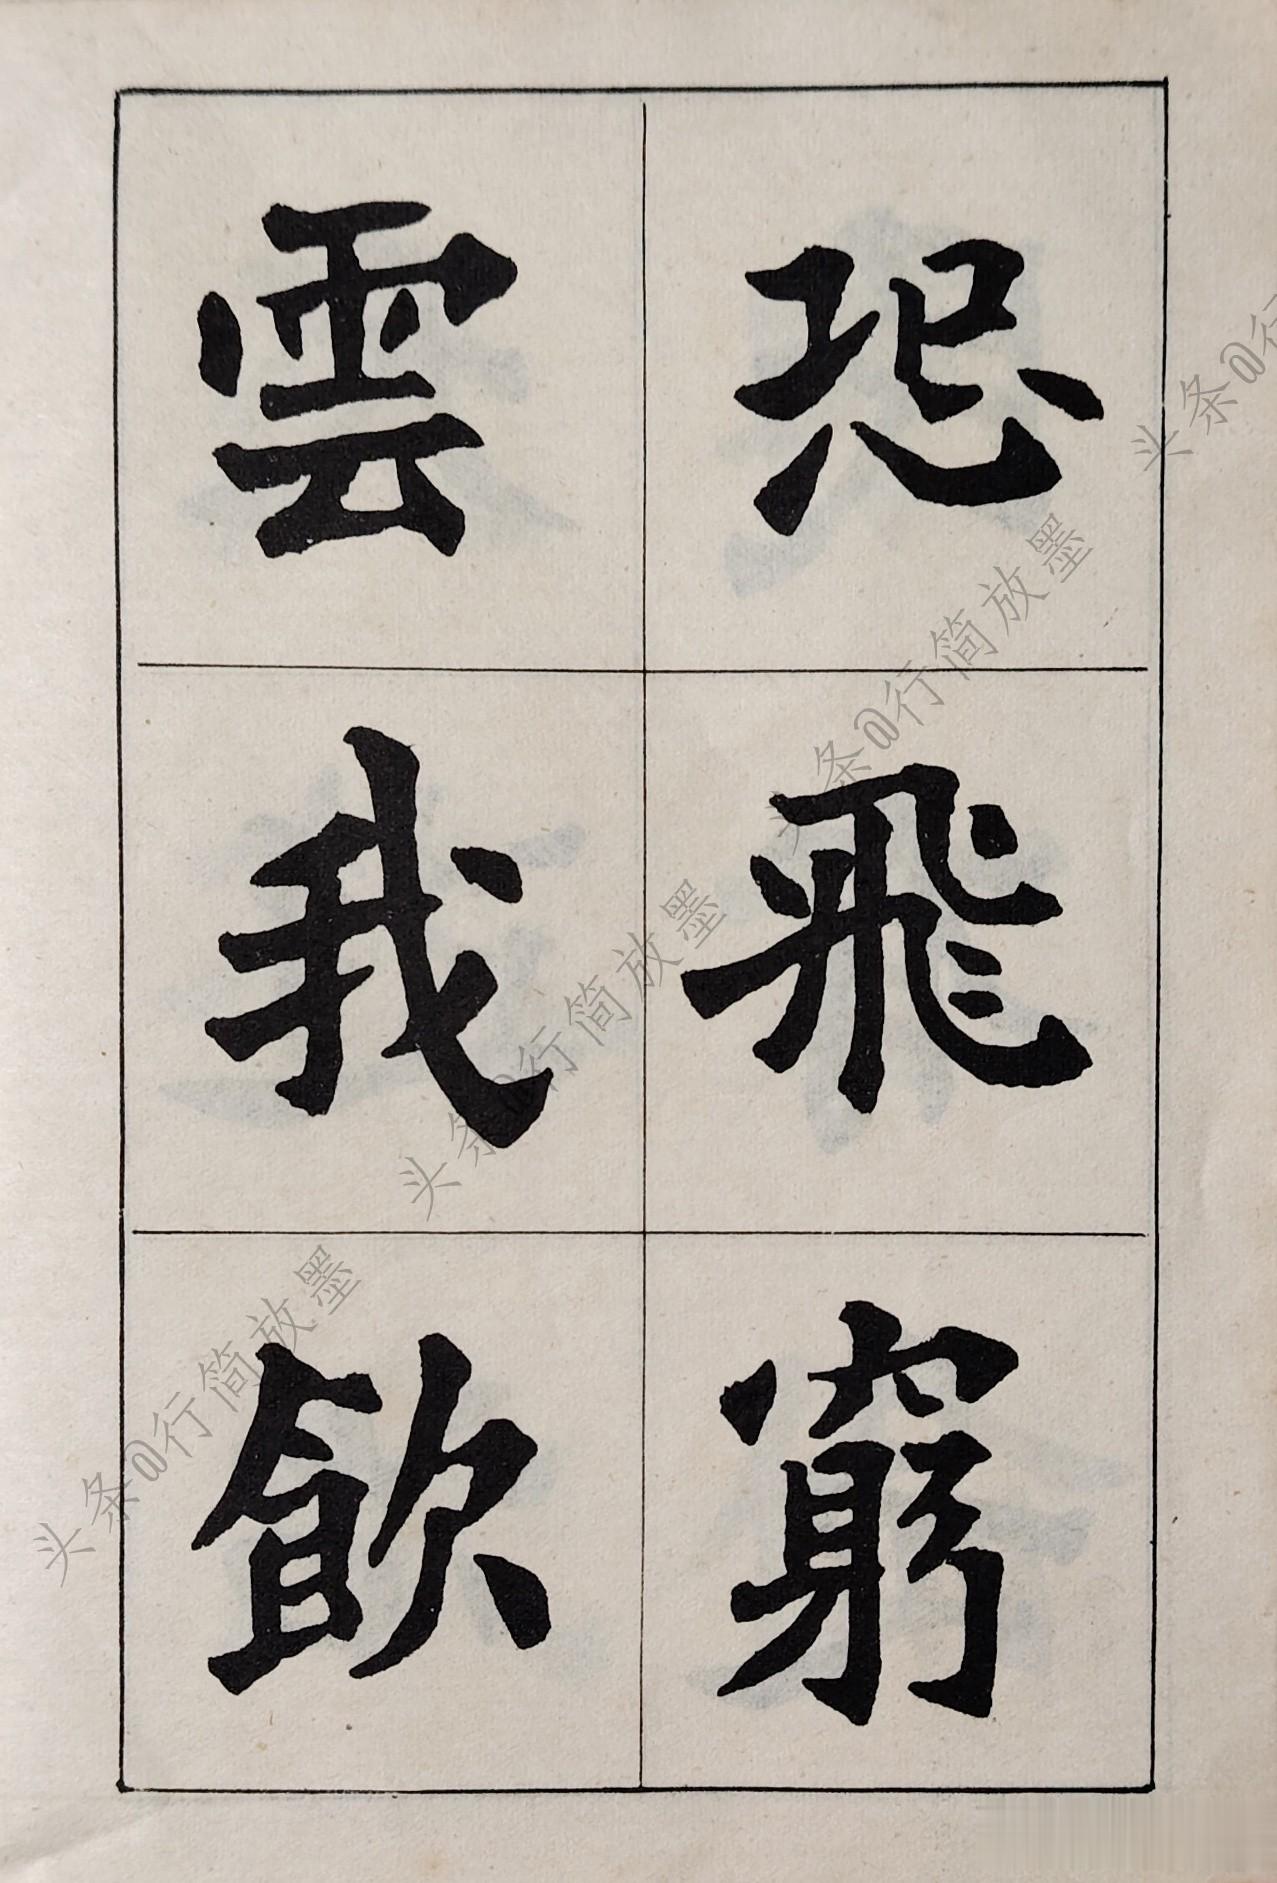 恐飛窮
雲我飲
头条@行简放墨
头条@行简放墨
头条@行简放墨
头条@行